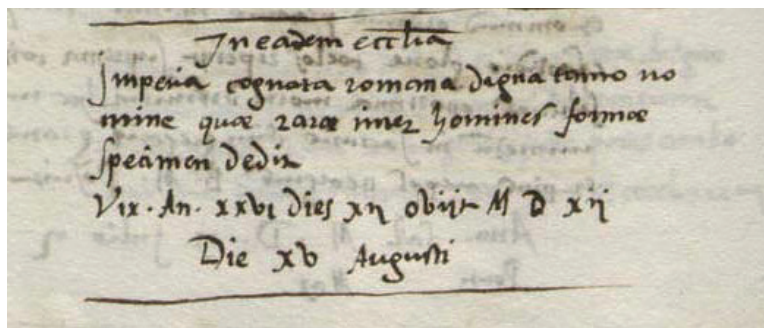 In eadem eccl̄ia
Imperia cognata romana digna tanto no
mine quæ raræ inter homines formæ
specimen dedit
Vix · An · xxvi dies xij obijt M D xij
Die xv Augusti